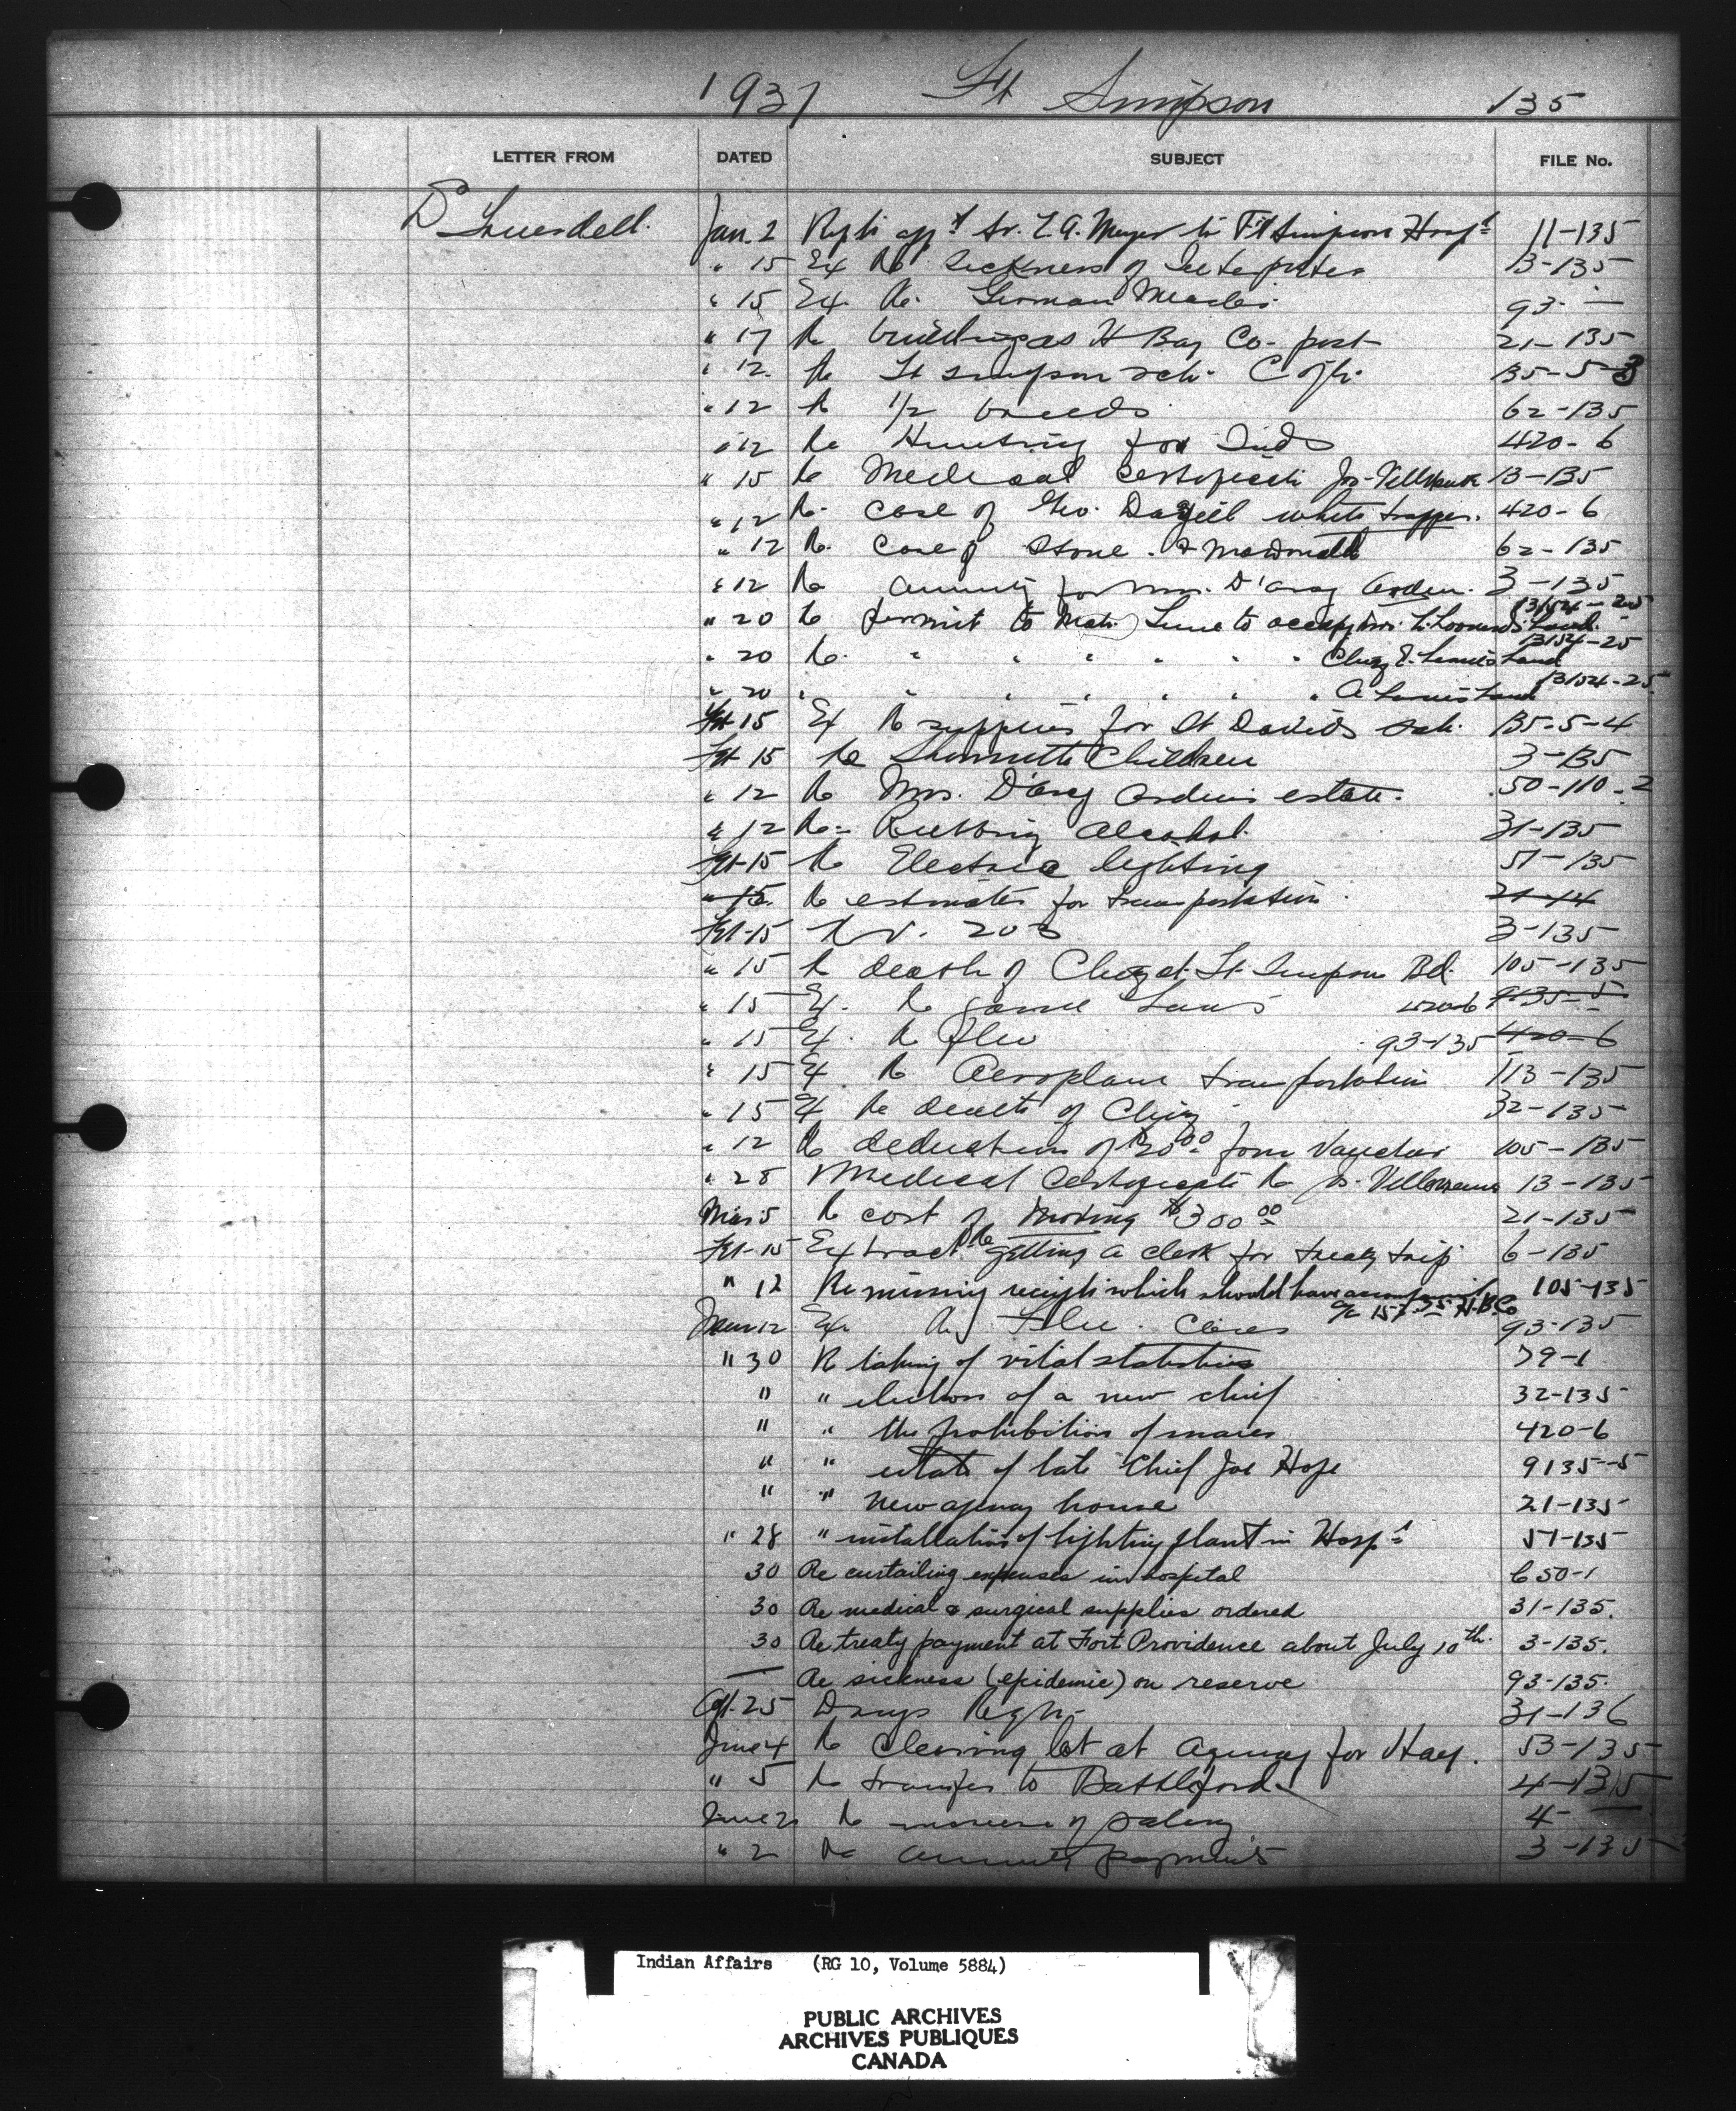 1937 Ft Simpson 135
LETTER FROM DATED SUBJECT FILE No.
D Truesdell. Jan. 2 Reply Meyer to Ft Simpson Hosp 11-135
" 15 Ex Re sickness of Interpreter 13-135
" 15 Ex. Re. German Measles 93- —
" 17 Re buildings H Bay Co. post 21-135
" 12. Re Ft Simpson sch. 135-5-3
" 12 Re 1/2 breeds 62-135
" 12 Re Hunting for Inds 420-6
" 15 Re Medical Certificate Jos. 13-135
" 12 Re. Case of Geo. white trapper. 420-6
" 12 Re. Case of Stone & McDonald 62-135
" 12 Re annuity for Mrs. D'arcy Arden. 3-135
" 20 Re permit to to occupy land. 13154-25
" 20 Re. " " " " " " land 13154-25
" 20 " " " " " " " A. land 13154-25
Feb 15 Ex Re supplies for St Davids sch. 135-5-4
Feb 15 Re Children 3-135
" 12 Re Mrs. D'arcy Arden's estate. 50-110-2
" 12 Re- Rubbing alcohol. 31-135
Feb-15 Re Electric lighting 57-135
" 15. Re estimates for transportation. 21-14
Feb-15 Re V. 203 3-135
" 15 Re death of Clergy at Ft. Simpson 105-135
" 15 Ex. Re Game Laws 420-6 9135-5
" 15 Ex. Re Flu 93-135 420-6
" 15 Ex. Re Aeroplane transportation 113-135
" 15 Ex Re death of 32-135
" 12 Re deduction of from Voucher 105-135
" 28 Medical Certificate Re Jos. 13-135
Mar 5 Re cost of moving $300 00 21-135
Feb-15 Extract Re getting a clerk for treaty trip 6-135
" 12 Re missing receipts which should have accompanied 105-135
a/c H.B.Co
Mar 12 Ex. Re Flu. 93-135
" 30 Re taking of vital statistics 39-1
" " election of a new chief 32-135
" " the prohibition of snares 420-6
" " estate of late Chief Joe Hope 9135-5
" " new agency house 21-135
" 28 " installation of lighting plant in Hosp 57-135
30 Re curtailing expenses in hospital 650-1
30 Re medical & surgical supplies ordered 31-135.
30 Re treaty payment at Fort Providence about July 10th. 3-135.
— Re sickness (epidemic) on reserve 93-135.
Apl. 25 Drugs Reqn. 31-136
June 4 Re Clearing lot at agency for Hay. 53-135
" 5 Re transfer to Battleford 4-135
June 2 Re increase of salary 4- —
" 2 Re annuity payments 3-135
Indian Affairs (RG 10, Volume 5884)
PUBLIC ARCHIVES
ARCHIVES PUBLIQUES
CANADA